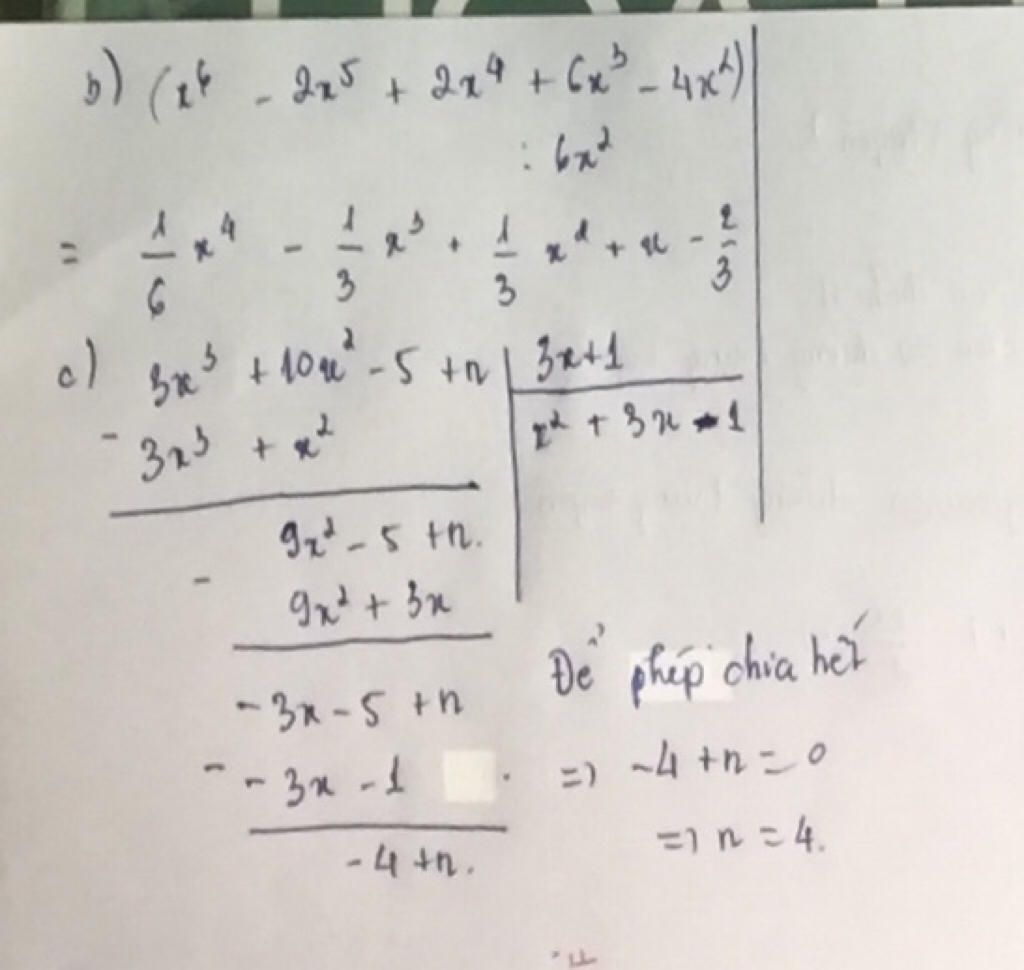 b) (x⁶ - 2x⁵ + 2x⁴ + 6x³ - 4x²)
: 6x²
= 1/6 x⁴ - 1/3 x³ + 1/3 x² + x - 2/3
c) 3x³ + 10x² - 5 + n | 3x+1
- 3x³ + x² | x² + 3x - 1
9x² - 5 + n.
- 9x² + 3x
- 3x - 5 + n
Để phép chia hết
- - 3x - 1
=> -4 + n = 0
- 4 + n.
=> n = 4.